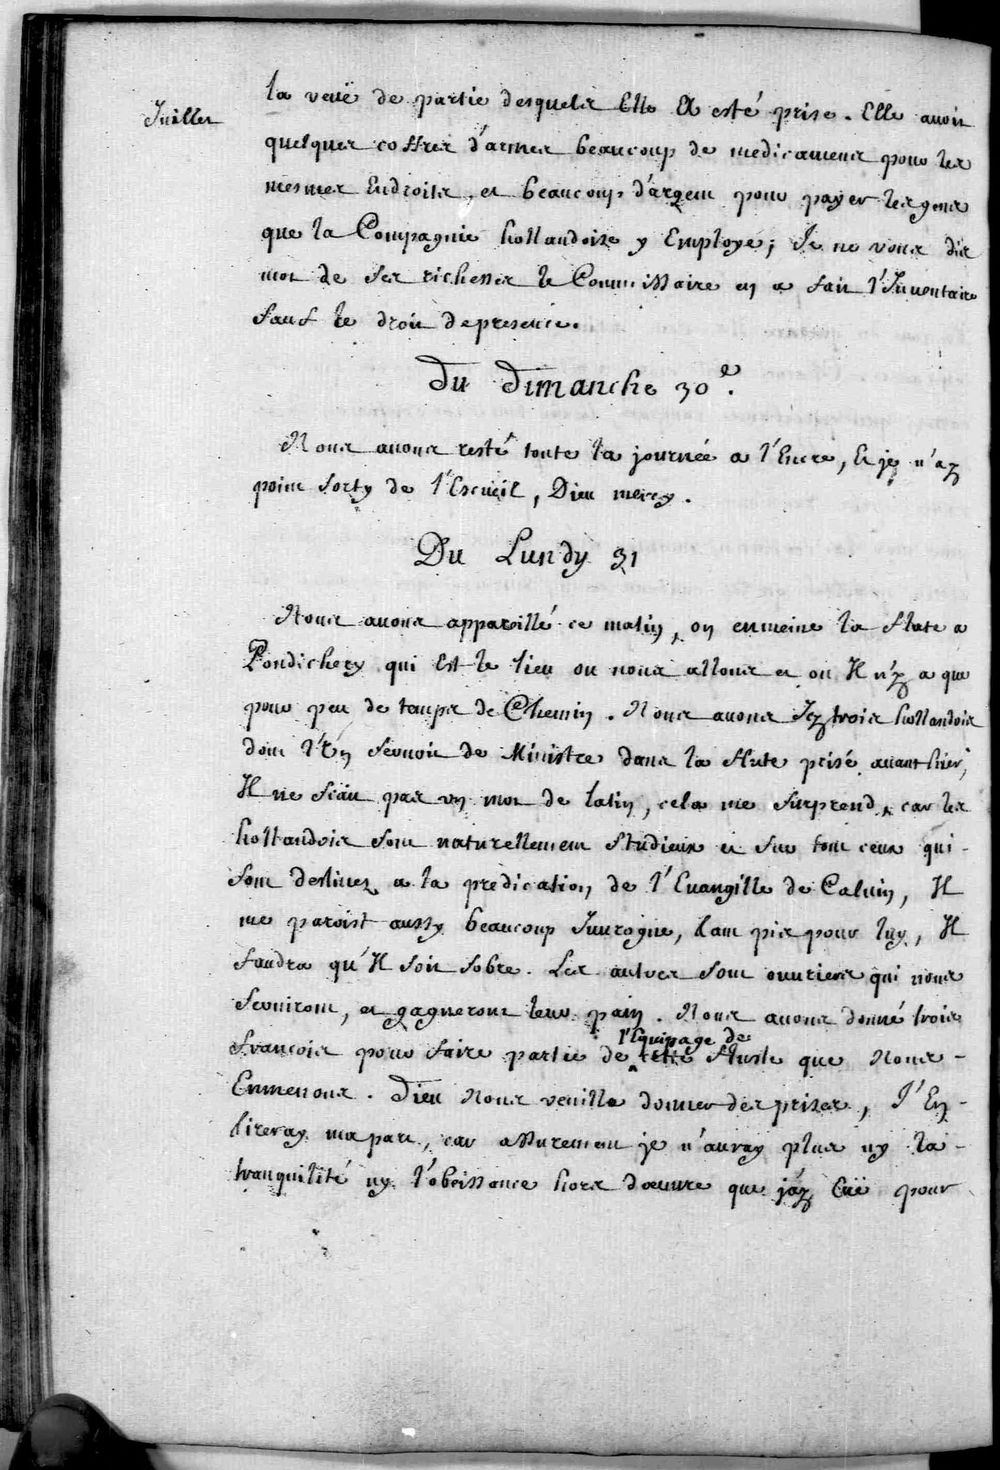 Juillet
la veuë de partie desquels Elle A esté prise. Elle avoit
quelques coffres d'armes beaucoup de medicamens pour les
mesmes Endroits, et beaucoup d'argent pour payer les gens
que la Compagnie hollandoise y Employe; Je ne vous dis
mot de ses richesses le Commissaire en a fait l'Inventaire
sauf le droit de presence.
Du Dimanche 30e.
Nous avons resté toute la journée a l'Encre, Et je n'ay
point sorty de l'Escueil, Dieu mercy.
Du Lundy 31
Nous avons appareillé ce matin, on enmeine la flute a
Pondichery qui Est le lieu ou nous allons et ou Il n'y a que
pour peu de temps de Chemin. Nous avons Icy trois hollandois
dont l'Un servoit de Ministre dans la flute prise avant hier,
Il ne sçait pas un mot de latin, cela me surprend, car les
hollandois sont naturellement studieux et sur tout ceux qui
sont destinez a la predication de l'Evangille de Calvin, Il
me paroist aussy beaucoup Ivrogne, tant pis pour luy, Il
faudra qu'Il soit sobre. Les autres sont ouvriers qui nous
serviront, et gagneront leur pain. Nous avons donné trois
francois pour faire partie de l'Equipage de cette fluste que Nous
Enmenons. Dieu Nous veuille donner des prises, J'En
tireray ma part, car assurement je n'auray plus ny la
tranquilité ny l'obeissance hors d'œuvre que j'ay Eüe pour